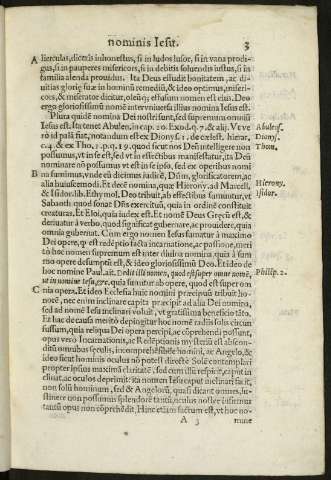 nominis Iesu.
3
A lierculas, dictus inhonestus, si in ludos lusor, si in vana prodi-
gus, si in pauperes misericors, si in debitis soluendis iustus, si in
familia alenda prouidus. Ita Deus effudit bonitatem, ac di-
uitias glorię suæ in hominũ remediũ, & ideo optimus, miseri-
cors, & miserator dicitur, oleũq; effusum nomen est eius. Deo
ergo gloriosissimũ nomẽ interuniuersa illius nomina Iesus est.
Plura quidẽ nomina Dei nostri sunt, sed supremum omniũ
Iesus est. Ita tenet Abulen. in cap. 20. Exod. q. 7. & alij. Ve ve
rò id palã fiat, notandum est ex Dionys. c. 1. de cælest. hierar.
Abulens.
Dionys.
c. 4. & ex Tho. 1. p. q. 19. quod sicut nos Deũ intelligere non
Thom.
possumus, vt in se est, sed vt in effectibus manifestatur, ita Deũ
nominare nõ possumus vt est in se ipso, sed ex operibus nomi
B na sumimus, vnde eũ dicimus iudicẽ, Dũm, glorificatorem, ac
alia huiuscemodi. Et decẽ nomina, quæ Hierony. ad Marcell.
Hierony.
& Isidor. lib. Ethymol, Deo tribuit, ab effectibus sumuntur, vt
Isidor.
Sabaoth quod sonat Dñs exercituũ, quia in ordinẽ constituit
creaturas, Et Eloi, quia iudex est. Et nomẽ Deus Gręcũ est, &
deriuatur à verbo, quod significat gubernare, ac prouidere, quia
omnia gubernat. Cum ergo nomen Iesus sumatur à maximo
Dei opere, ꝙ est redẽptio facta incarnatione, ac passione, meri
tò hoc nomen supremum est inter diuina nomina, quia à sum
mo opere desumptũ est, & ideò gloriosissimũ Deo. Et ideo de
hoc nomine Paul. ait. Dedit illi nomen, quod est super omne nomẽ,
vt in nomine Iesu, &c. quia sumitur ab opere, quod est super om
Philipp. 2.
C nia opera, Et ideo Ecclesia huic nomini præcipuũ tribuit ho-
norẽ, nec enim inclinare capita præcipit ad alia Dei nomina,
sed ad nomẽ Iesu inclinari voluit, vt gratissima beneficio tãto.
Et hac de causa meritò depingitur hoc nomẽ radijs solis circun
fusum, quia reliqua Dei opera percipi, ac cõprehendi possunt,
opus verò Incarnationis, ac Redẽptionis mysteriũ est abscon-
ditũ omnibus sęculis, incomprehensibile homini, ac Angelo, &
ideo sicut hominis oculus nõ potest directè Solẽ contemplari
propter ipsius maximã claritatẽ, sed cum illũ respicit, caput in
clinat, ac oculos deprimit: ita nomen Iesu caput inclinari facit,
non solũ hominum, sed & Angelorũ, quasi dicant omnes, su-
stinere non possumus splendorẽ tantũ, oculus noster infirmus
tantũ opus non cõprehẽdit, Hanc etiam factum est, vt hoc no-
A 3
mine